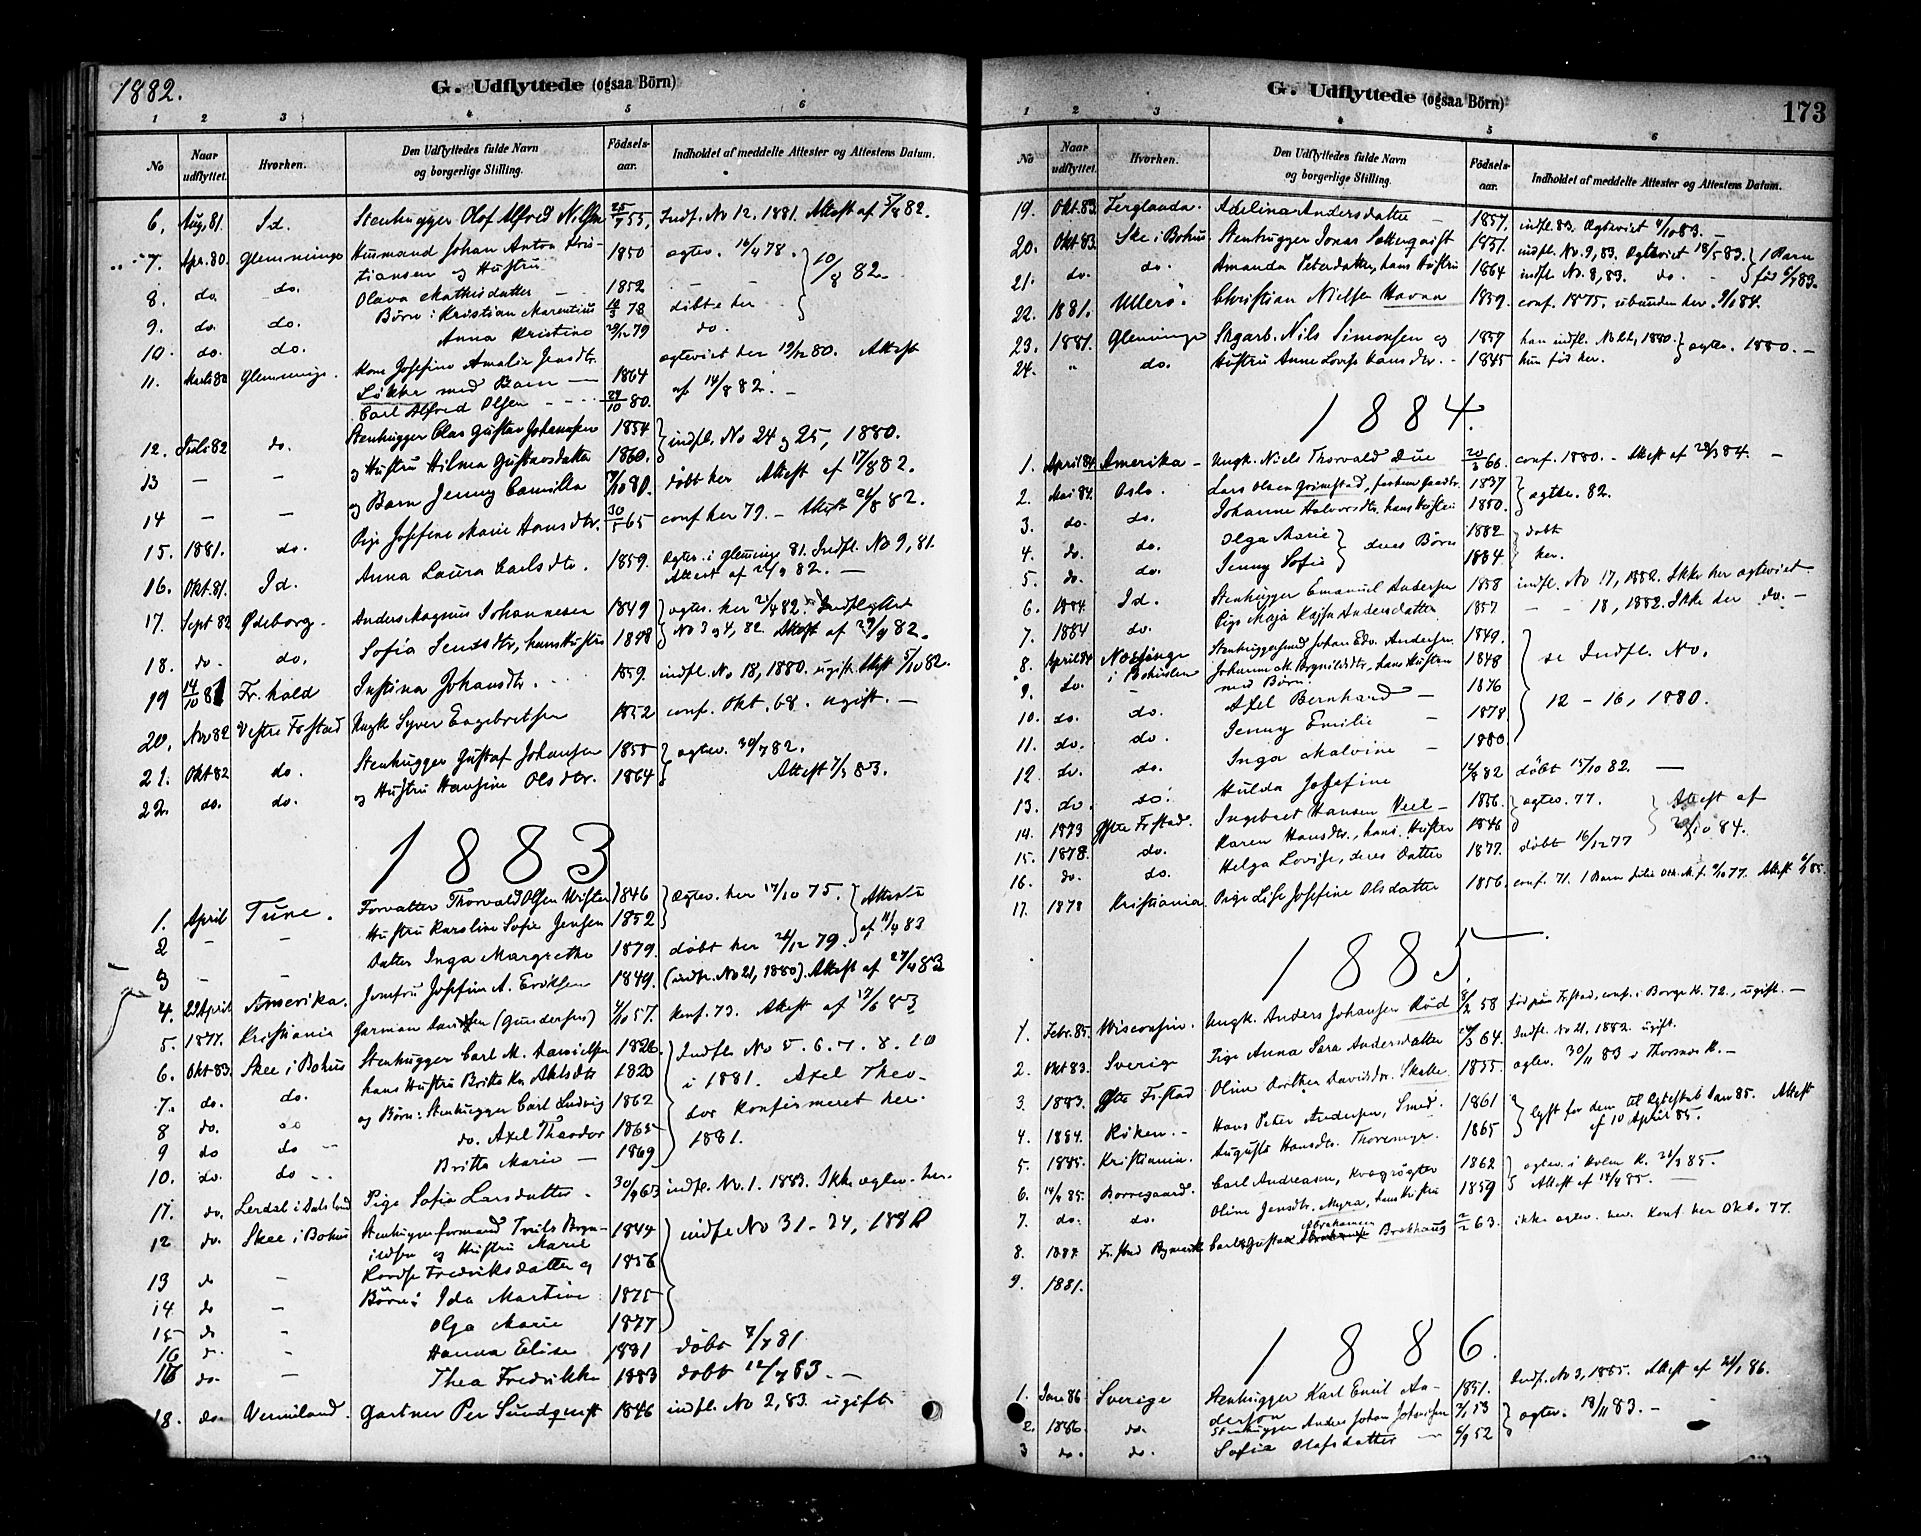 1882.
G. Udflyttede (ogsaa Börn)
1 2 3 4 5 6
No Naar udflyttet. Hvorhen. Den Udflyttedes fulde Navn og borgerlige Stilling. Födsels-aar. Indholdet af meddelte Attester og Attestens Datum.
6. Aug. 81. Id. Stenhugger Olof Alfred Nilsen 25/7 55, Indfl. No 12. 1881. Attest af 5/8 82.
7. Apr. 80. Glemminge Husmand Johan Anton Kris- 1850 egtev. 16/4 78.
tiansen og Hustru 10/8 82.
8. do. do. Olava Mathisdatter — 1852
9. do. do. Börn: Kristian Marentius 78 döbte her
10. do. do. Anna Kristine 29/12 79 do.
11. Marts 80 Glemminge. Kone Josefine Amalie Jensdtr. egteviet her 19/12 80. Attest
Løkke med Barn — 1864 af 14/8 82. —
Carl Alfred Olsen 24/10 80.
12. Juli 82 do. Stenhugger Claes Gustav Johansen 1854 indfl. No 24 og 25, 1880.
13 — — og Hustru Hilma Gustavsdatter 1860.
14 — — og Barn Jenny Camilla 80. döbt her Attest af 17/8 82.
15. 1881. do. Pige Josefine Marie Hansdtr. 30/1 65 conf her 79. — Attest 24/8 82.
16. Okt. 81. Id. Anna Laura Carlsdtr. 1859. Egtev. i Glemminge 81. Indfl. No 9, 81.
Attest af 82. —
17. Sept 82 Ødeborg. Anders Magnus Johannesen 1849 egtev. her 82. Indflyttet
18. do. do. Sofia Jensdtr, hans Hustru 1848 No 3 og 4, 82. Attest af 29/9 82.
19 14/10 81 Fr.hald Justina Johansdtr. 1859 indfl. No 18, 1880. ugift. Attest 5/10 82.
20. Nov 82 Vestre Fr.stad Ungk. Syver Engebretsen 1852 conf. Okt. 68. ugift. —
21. Okt 82 do. Stenhugger Gustaf Johansen 1858 egtev. 30/7 82.
22. do. do. og Hustru Hansine Olsdtr. 1864 Attest 7/3 83.
1883
1. April Tune. Forvalter Thorvald Olsen 1846 Egtev. her 17/10 75. Attester
2 — — Hustru Karoline Sofie Jensen 1852 af 11/4 83
3 — — Datter Inga Margrethe 1879. döbt her 26/12 79.
4. 22 April Amerika. Jomfru Josefine A. Eriksen 1849. (indfl. No 21, 1880). Attest af 27/4 83
5. 1877. Kristiania German (Gundersen) 4/10 57. Konf. 73. Attest af 17/6 83
6. Okt 83. Skee i Bohus Stenhugger Carl M. Danielsen 1826. Indfl. No 5. 6. 7. 8. 10
7. do. do. hans Hustru Britta Kr. Akselsdtr 1820 i 1881. Axel Theo-
8 do. do og Börn: Stenhugger Carl Ludvig 1862 dor Konfirmeret her
9 do do — do. Axel Theodor 1865 1881.
10. do. do Britta Marie — 1869
11. do. Lerdal i Dalsland Pige Sofia Larsdatter. 30/9 63 indfl. No. 1. 1883. Ikke egtev. her.
12 do. Skee i Bohus Stenhuggerformand Troils Bryn- 1844 indfl. No 31-34, 188
ildsen og Hustru Marie
13 do — Fredriksdatter og 1856
14 do — Börn: Ida Martine 1875
15 do — Olga Marie 1877
16 do — Hanna Elise 1881 döbt 7/7 81.
16 do. — Thea Fredrikke 1883 döbt 12/7 83. —
18. do. Vermland. Gartner Per Sundqvist 1846 indfl. No 2, 83. ugift
G. Udflyttede (ogsaa Börn) 173
1 2 3 4 5 6
No Naar udflyttet. Hvorhen. Den Udflyttedes fulde Navn og borgerlige Stilling. Födsels-aar. Indholdet af meddelte Attester og Attestens Datum.
19. Okt. 83. Ferglanda. Adelina Andersdatter — 1857. indfl. 83. Egteviet 4/10 83. —
20. Okt 83. Ske i Bohus. Stenhugger Jonas Setterqvist 1851. indfl. No. 9, 83. Egteviet 18/5 83. 1 Barn
21. do. do. Amanda Petersdatter, hans Hustru 1864 indfl. No. 8, 83. do. — föd 83.
22. 1881. Ullerø. Christian Nielsen Havna 1859. conf. 1875. ubunden her. 84.
23. 1881. Glemminge Stgarb. Nils Simonsen og 1859 han indfl. No 26, 1880. egtev. 1880. —
24. " do. Hustru Anne Lovise Hansdtr. 1845 hun föd her.
1884.
1. April 84 Amerika — Ungk. Niels Thorvald Due 20/2 66. conf. 1880. — Attest af 29/3 84. —
2. Mai 84. Oslo. Lars Olsen Grimstad, 1837 egtev. 82.
3. do. do. Johanne Halvorsdtr, hans Hustru 1850.
4. do. do. Olga Marie deres Börn 1882 döbt
5. do. do. Jenny Sofie 1884 her.
6. 1884 Id. Stenhugger Emanuel Andersen 1858 indfl. No 17, 1882. Ikke her egteviet
7. 1884 do. Pige Maja Kajsa Andersdatter 1857 — — 18, 1882. Ikke her do. —
8. April 84 Stenhuggersvend Johan Edv. Andersen 1849. se Indfl. No.
9. do. i Bohuslen Johanne M. Brynildsdtr, hans Hustru 1848
med Börn:
10. do. do. Axel Bernhard — 1876 12 - 16, 1880.
11. do. do. Jenny Emilie — 1878
12. do. do. Inga Malvine — 1880
13. do. do. Hulda Josefine 82 döbt 15/10 82. —
14. 1873 Østre Fr.stad. Ingebret Hansen Veel — 1856. egtev. 77. Attest af
15. 1878. do. Karen Hansdtr., hans Hustru 1846 10 84.
16. do. do. Helga Lovise, deres Datter 1877. döbt 16/12 77
17. 1878 Kristiania Pige Lise Josefine Olsdatter 1856. conf. 71. 1 Barn 77. Attest 85.
1885.
1. Febr. 85. Wisconsin. Ungk. Anders Johansen Röd 8/2 58 föd paa Fr.stad, conf. i Borge K. 72., ugift. —
2. Okt 83. Sverige Pige Anna Sara Andersdatter 64. Indfl. No 21, 1882. ugift.
3. 1883. Østre Fr.stad Oline Dorthea Davidsdtr. Skalle 1855. egtev. 30/11 83 i Thorsnes K. —
4. 1884. Röken. — Hans Peter Andersen, Smed. 1861 lyst for dem til Egteskab Jan 85. Attest
5. 1885. Kristiania. Augusta Hansdtr. Thoresmyr. 1865 af 10 April 85.
6. 14/4 85. Borregaard. Carl Andreasen, Kvægrögter 1862 egtev. i Holm K. 85.
7. do. do. Oline Jensdtr. Myra, hans Hustru 1859 Attest af 85. —
8. 1884 Fr.stad Bymark Carl Gustav Abrahamsen Brekhaug 2/2 63. ikke egtev. her. Konf. her Okt. 77.
9. 1881.
1886.
1. Jan 86 Sverige Stenhugger Karl Emil An- 1851. Indfl. No 3, 1885. Attest af 86.
derson
2. 1886. do. Stenhugger Anders Johan Johansen 53 egtev. 18/11 83. —
3 do. do. Sofia Olafsdatter — 6/9 52